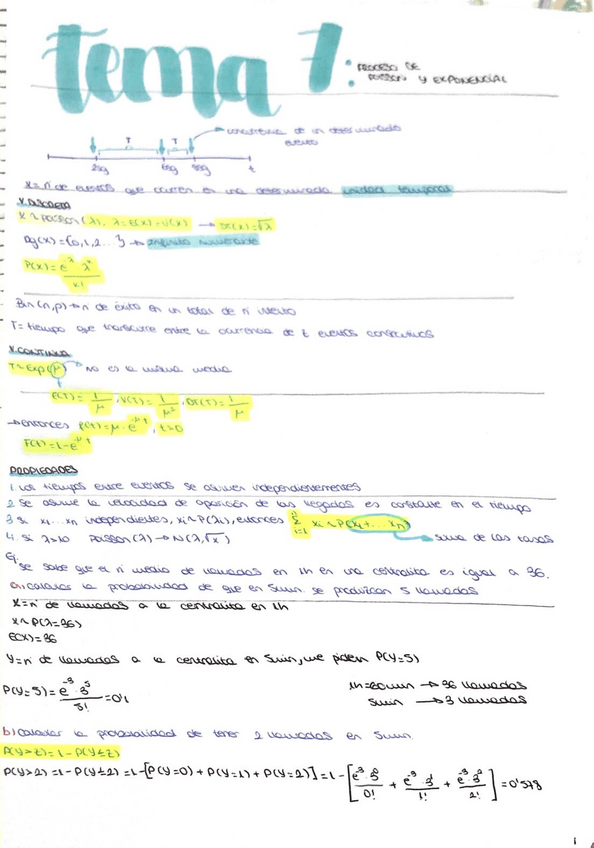 tema 7: PROCESO DE
POISSON Y EXPONENCIAL
ocurrencia de un determinado
evento
T T
t
X = nº de eventos que ocurren en una determinada unidad temporal
V. DISCRETA
X ~ POISSON (λ), λ = E(X) = V(X) → DT(X) = √λ
Dg(X) = {0,1,2...} → infinito numerable
P(X) = e^-λ · λ^x / x!
Bin (n,p) → nº de éxito en un total de n
T = tiempo que transcurre entre la ocurrencia de t eventos consecutivos
V. CONTINUA
T ~ Exp(μ) no es la misma media
E(T) = 1/μ, V(T) = 1/μ², DT(T) = 1/μ
→ entonces f(t) = μ · e^-μt, t>0
F(t) = 1 - e^-μt
PROPIEDADES
1. Los tiempos entre eventos se asumen independientemente
2. Se asume la velocidad de aparición de las llegadas es constante en el tiempo
3. Si x1...xn independientes, xi ~ P(λi), entonces Σ xi ~ P(x1 + ... xn)
suma de las tasas
4. Si λ>10 Poisson (λ) → N(λ, √λ)
Ej:
Se sabe que el nº medio de llamadas en 1h en una centralita es igual a 36.
a) Calcular la probabilidad de que en 5min. se produzcan 5 llamadas
X = nº de llamadas a la centralita en 1h
X ~ P(λ=36)
E(X) = 36
Y = nº de llamadas a la centralita en 5min, me piden P(Y=5)
P(Y=5) = e^-3 · 3^5 / 5! = 0'1
1h = 60min → 36 llamadas
5min → 3 llamadas
b) Calcular la probabilidad de tener 2 llamadas en 5min.
P(Y>2) = 1 - P(Y≤2)
P(Y>2) = 1 - P(Y≤2) = 1 - [P(Y=0) + P(Y=1) + P(Y=2)] = 1 - [e^-3 · 3^0 / 0! + e^-3 · 3^1 / 1! + e^-3 · 3^2 / 2!] = 0'578
1